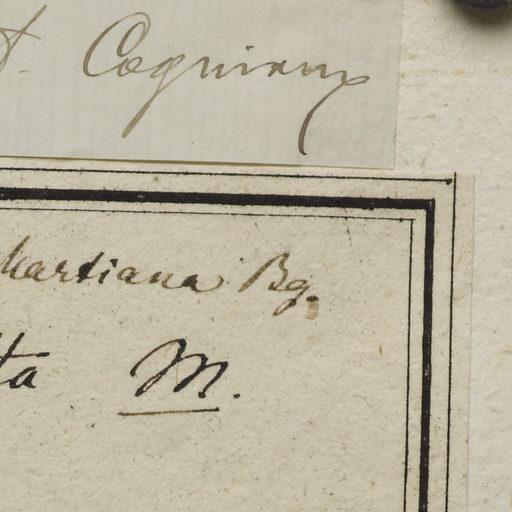 t. Cogniaux
Martiana Bg.
ta M.